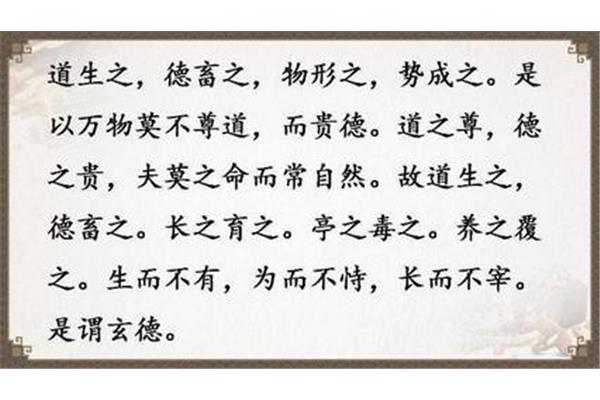 道生之，德畜之，物形之，势成之。是
以万物莫不尊道，而贵德。道之尊，德
之贵，夫莫之命而常自然。故道生之，
德畜之。长之育之。亭之毒之。养之覆
之。生而不有，为而不恃，长而不宰。
是谓玄德。